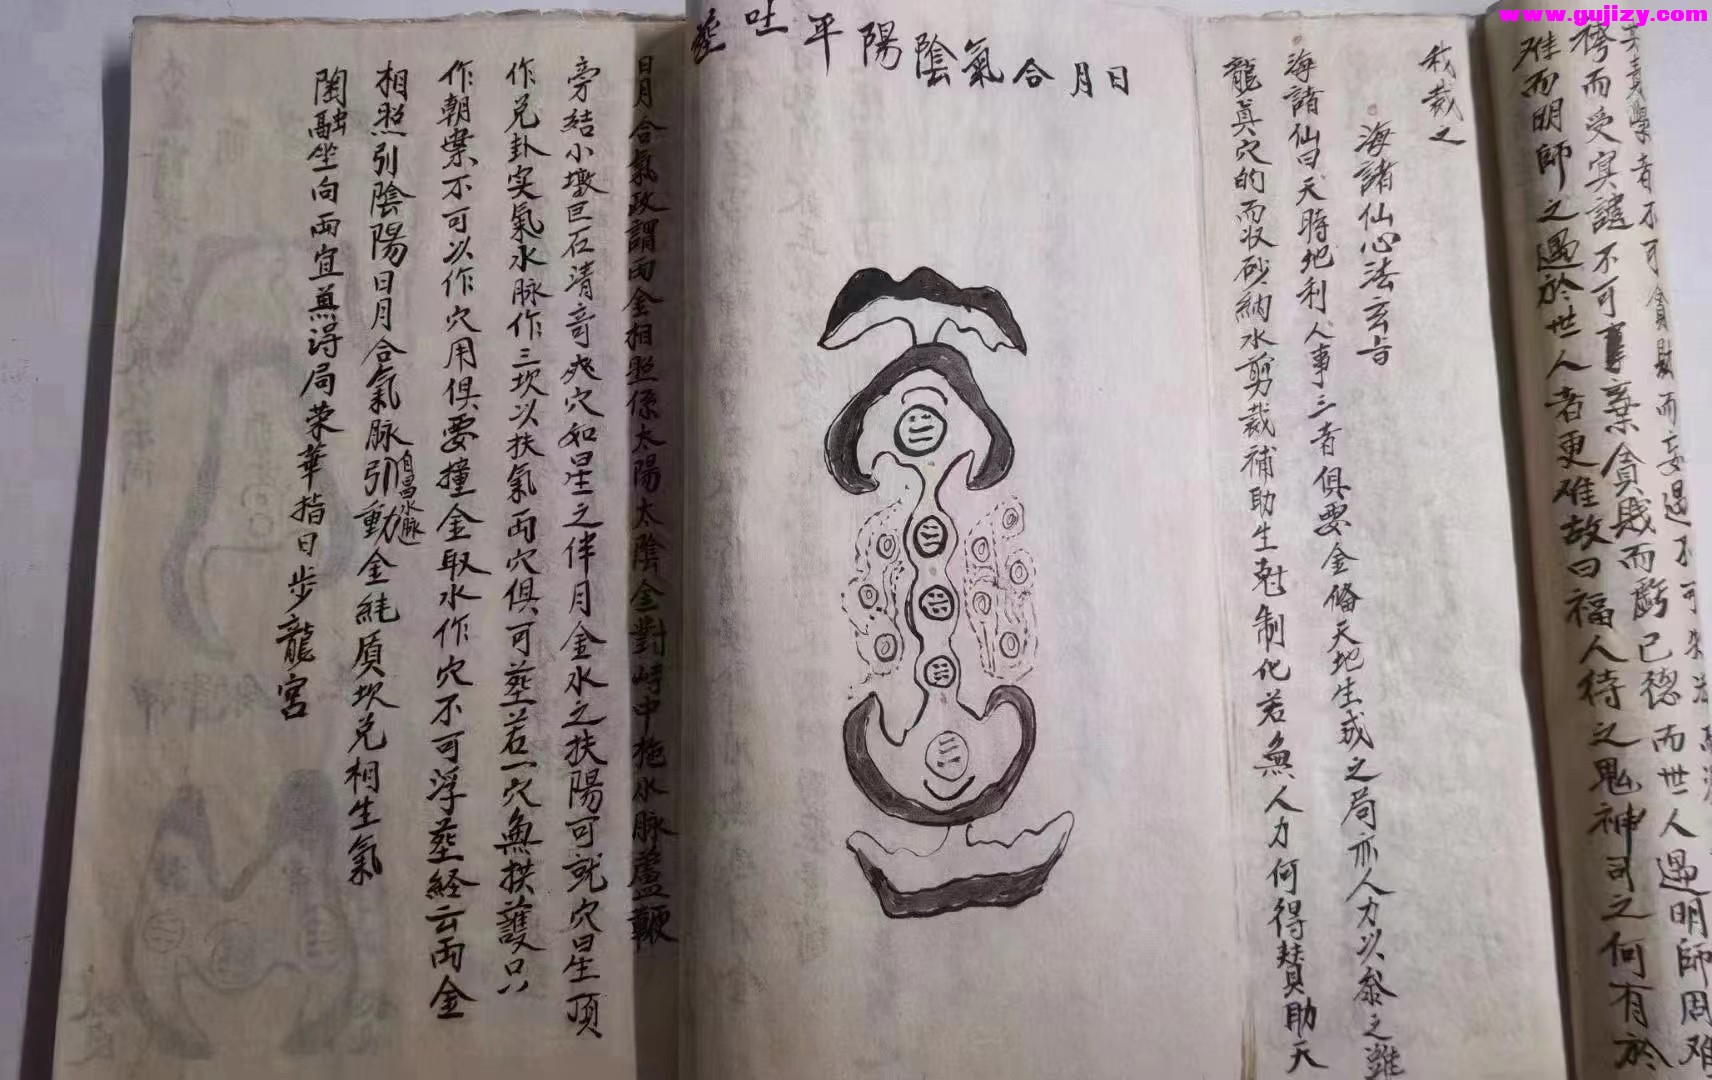 www.gujizy.com
其責學者不可貪財而妄遇不可
務而受冥譴不可事棄貪賤而虧已德而世人遇明師周难
难而明師之遇於世人者更难故曰福人待之鬼神司之何有於
我裁之
海諸仙心法玄旨
海諸仙曰天時地利人事三者俱要金俻天地生成之局亦人力以叅之雖
龍真穴的而收砂納水剪裁補助生尅制化若無人力何得賛助天
日月合氣陰陽平吐塟
日月合氣政謂両金相照係太陽太陰金對峙中拖水脉蘆鞭
旁結小墩巨石清竒爽穴如星之伴月金水之扶陽可就穴星頂
作兑卦实氣水脉作三坎以扶氣两穴俱可塟若一穴無拱護只以
作朝案不可以作穴用俱要撞金取水作穴不可浮塟経云両金
相照引陰陽日月合氣脉引動金純質坎兑相生氣
自昌水脉
陶融坐向両宜無淂局荣華指日步龍宮